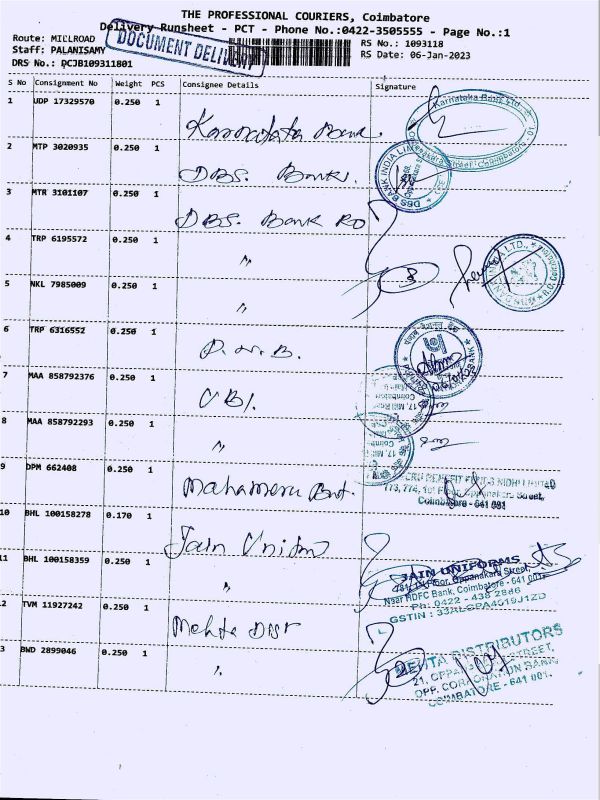 THE PROFESSIONAL COURIERS, Coimbatore
Delivery Runsheet - PCT - Phone No.:0422-3505555 - Page No.:1
Route: MILLROAD
Staff: PALANISAMY
DRS No.: PCJB109311801
DOCUMENT DELIVERY
RS No.: 1093118
RS Date: 06-Jan-2023
S No Consignment No Weight PCS Consignee Details Signature
1 UDP 17329570 0.250 1 Karnataka Bank
Karnataka Bank Ltd.
2 MTP 3020935 0.250 1 DBS. Bank
DBS BANK INDIA LIMITED
3 MTR 3101107 0.250 1 DBS. Bank RO
4 TRP 6195572 0.250 1 "
5 NKL 7985009 0.250 1 "
6 TRP 6316552 0.250 1
7 MAA 858792376 0.250 1 UBI.
17, Mill Road
Coimbatore
8 MAA 858792293 0.250 1 "
17, Mill
Coimb
9 DPM 662408 0.250 1 Mahameru Bnt.
BENEFIT FUND NIDHI LIMITED
Oppanakara Street,
Coimbatore - 641 001
10 BHL 100158278 0.170 1 Jain Uniform
11 BHL 100158359 0.250 1 "
JAIN UNIFORMS
Floor, Oppanakara Street,
Near HDFC Bank, Coimbatore - 641 001.
Ph: 0422 - 438 2886
GSTIN :
2 TVM 11927242 0.250 1 Mehta Dist
3 BWD 2899046 0.250 1 "
MEHTA DISTRIBUTORS
21, OPPANAKARA STREET,
OPP. CORPORATION BANK
COIMBATORE - 641 001.